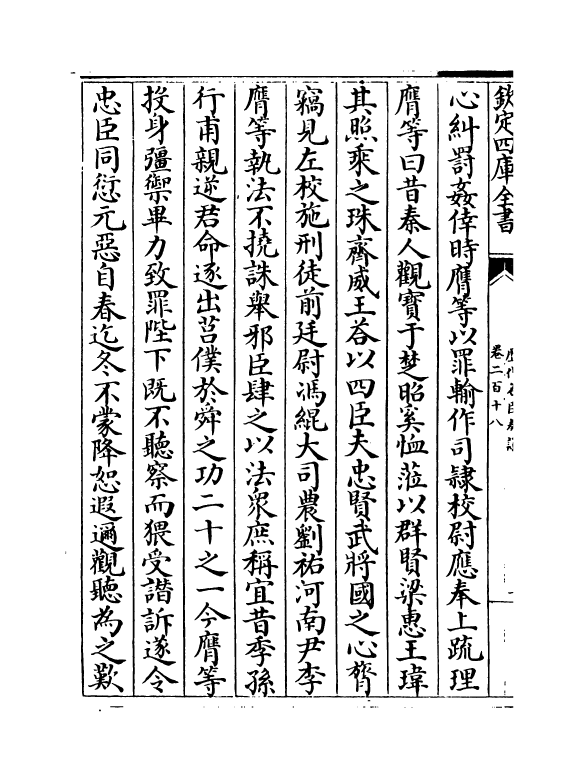 欽定四庫全書
卷二百十八
心糾罰姦倖時膺等以罪輸作司隸校尉應奉上疏理
膺等曰昔秦人觀寶于楚昭奚恤蒞以群賢梁惠王瑋
其照乘之珠齊威王荅以四臣夫忠賢武將國之心膂
竊見左校施刑徒前廷尉馮緄大司農劉祐河南尹李
膺等執法不撓誅舉邪臣肆之以法衆庶稱宜昔季孫
行甫親逆君命逐出莒僕於舜之功二十之一今膺等
投身彊禦畢力致罪陛下既不聽察而猥受譖訴遂令
忠臣同愆元惡自春迄冬不蒙降恕遐邇觀聽為之歎